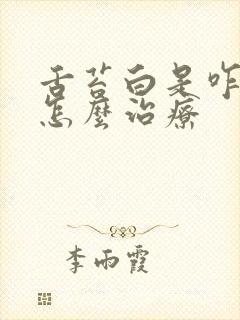 舌苔白是咋
怎麼治療
李雨霞